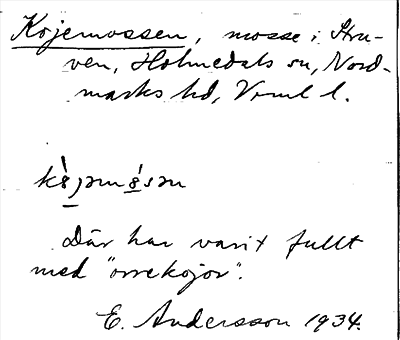 Kojemossen, mosse i Stru-
ven, Holmedals sn, Nord-
marks hd, Vrml l.
Där har varit fullt
med "orrekojor".
E. Andersson 1934.